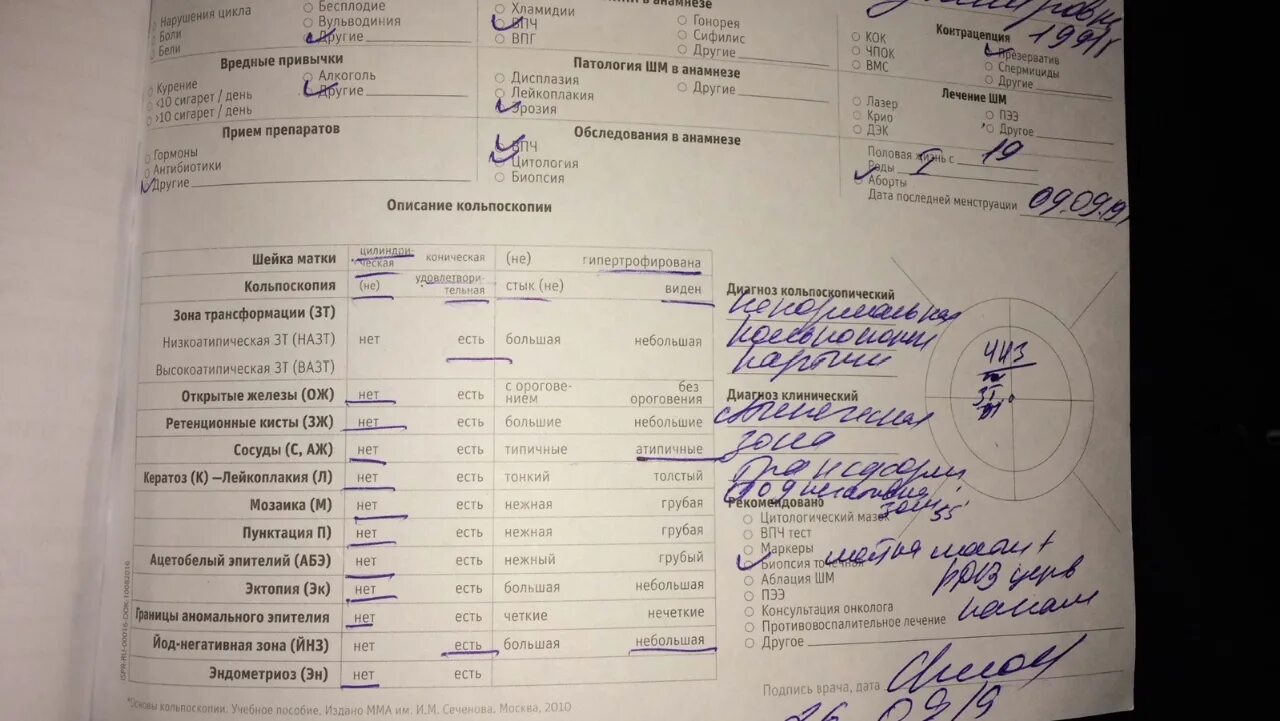 Нарушения цикла
Боли
Бели
Бесплодие
Вульводиния
Другие
Вредные привычки
Курение
<10 сигарет / день
>10 сигарет / день
Алкоголь
Другие
Прием препаратов
Гормоны
Антибиотики
Другие
в анамнезе
Хламидии
ВПЧ
ВПГ
Гонорея
Сифилис
Другие
Патология ШМ в анамнезе
Дисплазия
Лейкоплакия
Эрозия
Другие
Обследования в анамнезе
ВПЧ
Цитология
Биопсия
Контрацепция
КОК
ЧПОК
ВМС
Презерватив
Спермициды
Другие
Лечение ШМ
Лазер
Крио
ДЭК
ПЭЭ
Другое
Половая жизнь с 19
Роды I
Аборты
Дата последней менструации 09.09.19
Описание кольпоскопии
Шейка матки цилиндри-ческая коническая (не) гипертрофирована
Кольпоскопия (не) удовлетвори-тельная стык (не) виден
Зона трансформации (ЗТ)
Низкоатипическая ЗТ (НАЗТ) нет есть большая небольшая
Высокоатипическая ЗТ (ВАЗТ)
Открытые железы (ОЖ) нет есть с орогове-нием без ороговения
Ретенционные кисты (ЗЖ) нет есть большие небольшие
Сосуды (С, АЖ) нет есть типичные атипичные
Кератоз (К) —Лейкоплакия (Л) нет есть тонкий толстый
Мозаика (М) нет есть нежная грубая
Пунктация П) нет есть нежная грубая
Ацетобелый эпителий (АБЭ) нет есть нежный грубый
Эктопия (Эк) нет есть большая небольшая
Границы аномального эпителия нет есть четкие нечеткие
Йод-негативная зона (ЙНЗ) нет есть большая небольшая
Эндометриоз (Эн) нет есть
*Основы кольпоскопии. Учебное пособие. Издано ММА им. И.М. Сеченова. Москва, 2010
ISPR-RU-00016-DOK-10082016
Диагноз кольпоскопический
ненормальная
кольпоскопич
картина
Диагноз клинический
зона
трансформ
Рекомендовано
Цитологический мазок
ВПЧ тест
Маркеры
Биопсия точечная
Аблация ШМ
ПЭЭ
Консультация онколога
Противовоспалительное лечение
Другое
Подпись врача, дата